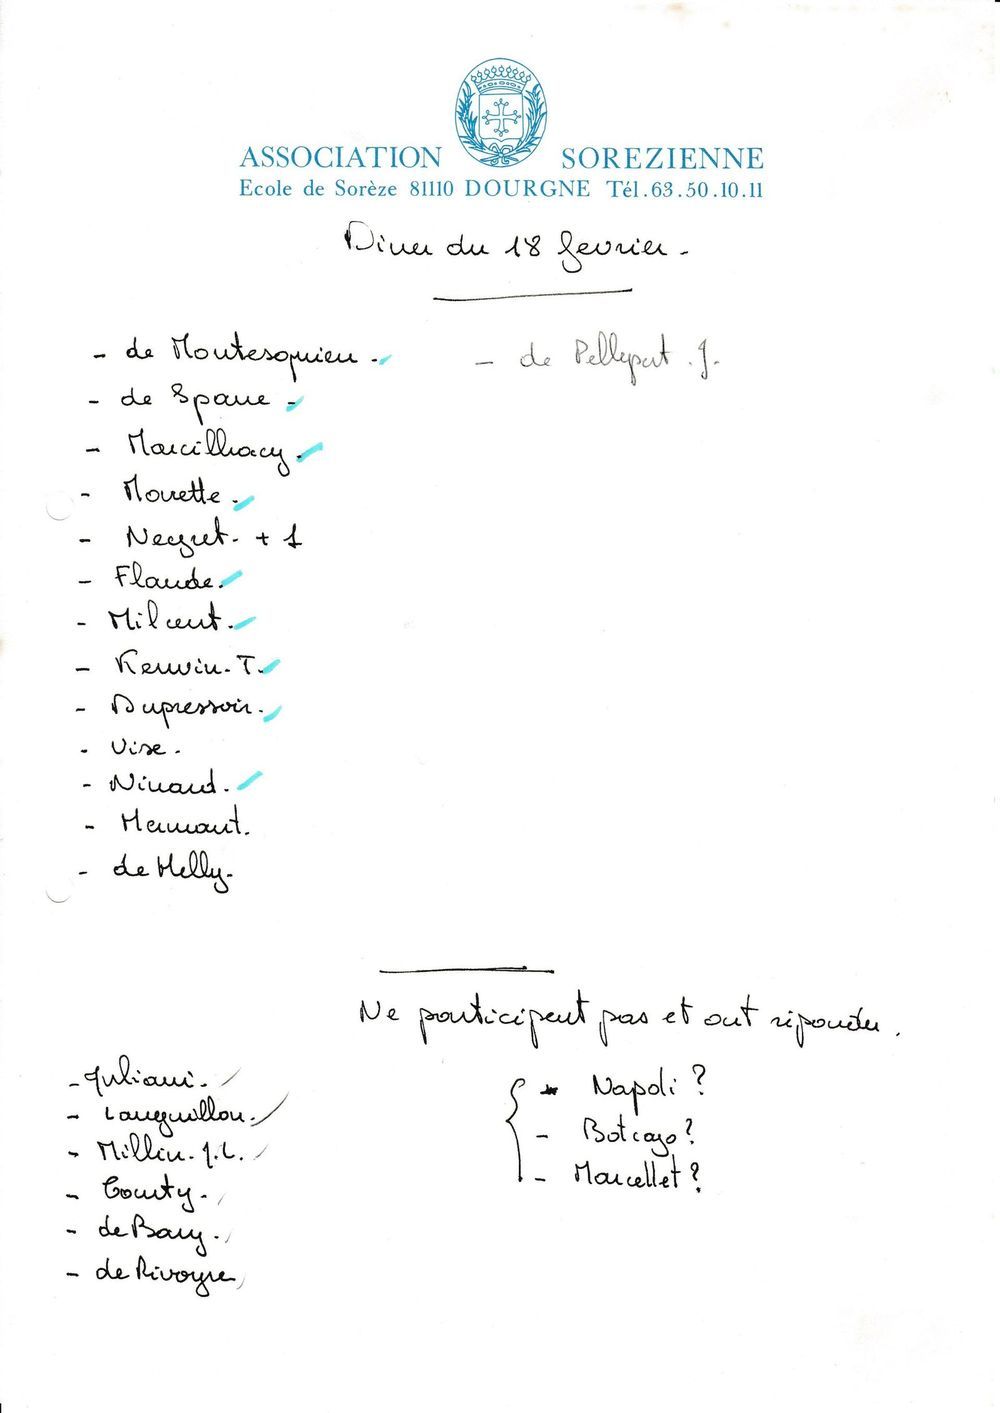 ASSOCIATION SOREZIENNE
Ecole de Sorèze 81110 DOURGNE Tél.63.50.10.11
Diner du 18 fevrier.
- de Montesquieu.
- de Pellepart. J.
- de Spane
- Marcilhacy.
- Monette.
- Negret. + 1
- Flaude.
- Milcent.
- Kenwin. T.
- Dupressoir.
- Vise.
- Ninard.
- Hermant.
- de Melly.
Ne participent pas et ont répondu.
- Juliani.
- Languillon.
- Millin. J.L.
- Courty.
- de Bary.
- de Rivoyre
- Napoli ?
- Botcazo ?
- Marcellet ?